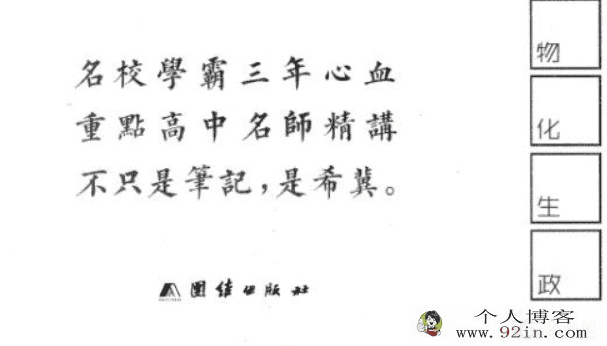 名校學霸三年心血
重點高中名師精講
不只是筆記，是希冀。
团结出版社
物
化
生
政
个人博客
www.92in.com